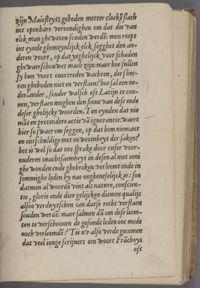 zijn Maiesteyt geboden metter clocke slach
int openbare vercondighen om dat die van
elck man ghe weten souden werdē: men roept
int eynde ghemeynlijck elck segghet den an-
deren voort, op dat yeghelijck voor schaden
ghe waerschou wet mach zijn: maer hoe sullen
zy hen voort onerteerden wachten, die
den gheboden niet en verstaen? hoe sal een ne-
derlander, sonder walsch oft Latijn te con-
nen, verstaen moghen den sinne van dese ende
deser ghelijcke woorden. Ten eynden dat nie-
mant en pretendere actie va ignorantie: waert
hier so swaer om segghen, op dat hem niemant
en ontschuldige met on wetenheyt der saken?
het is wel so dat ons sprake door onser voor-
onderen onachtsaemheyt in desen al met een
ghe wonden ende ghebreken verleemt ende in
sommighe leden by nae onghenesselijck is: soo
datmen al woorde vint als nature, conscien-
tie, glorie ende dier gelijcken diemen qualijc
alsoo verduytschen can datse recht verstaen
souden werdē: maer salmen dā om dese leem-
ten te verschoonen de gesonde leden ooc mede
noch verleemdē? Tis nv alsoo verde gecomen
dat veel jonge scrijuers een woort Franchoys
oft